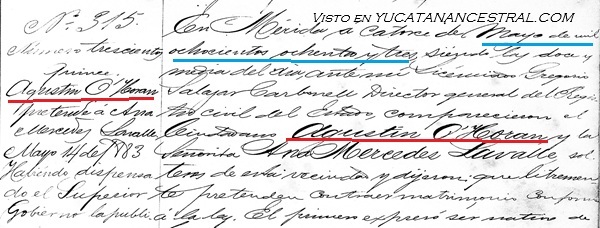 VISTO EN YUCATANANCESTRAL.COM
Nº 315.
Número trescientos
quince.
Agustin O'Horan
pretende á Ana
Mercedes Lavalle
Mayo 14 de 1883
Habiendo dispensa
do el Superior
Gobierno la publi
En Mérida, a catorce del Mayo de mil
ochocientos ochenta y tres, siendo las doce y
media del dia, ante mi Licenciado Gregorio
Salazar Carbonell Director general del Regis
tro civil del Estado, comparecieron el
Ciudadano Agustin O'Horan y la
Señorita Ana Mercedes Lavalle, sol
teros de esta vecindad y dijeron: que libremen
te pretenden contraer matrimonio conforme
á la ley. El primero expresó ser nativo de